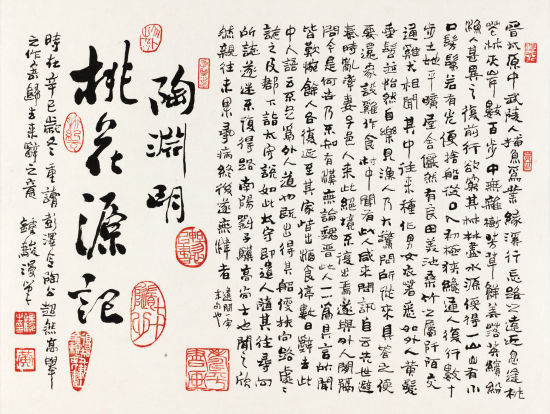 晉太原中武陵人捕魚為業緣溪行忘路之遠近忽逢桃
花林夾岸數百步中無雜樹芳草鮮美落英繽紛
漁人甚異之復前行欲窮其林林盡水源便得一山山有小
口髣髴若有光便捨船從口入初極狹纔通人復行數十
步土地平曠屋舍儼然有良田美池桑竹之屬阡陌交
通雞犬相聞其中往來種作男女衣著悉如外人黃髮
垂髫並怡然自樂見漁人乃大驚問所從來具答之便
要還家設雞作食村中聞有此人咸來問訊自云先世避
秦時亂率妻子邑人來此絕境不復出焉遂與外人間隔
問今是何世乃不知有漢無論魏晉此人一一為具言所聞
皆歎惋餘人各復延至其家皆出酒食停數日辭去此
中人語云不足為外人道也既出得其船便扶向路處處
誌之及郡下詣太守說如此太守即遣人隨其往尋向
所誌遂迷不復得路南陽劉子驥高尚士也聞之欣
然親往未果尋病終後遂無津者
陶淵明
桃花源記
時在辛巳歲冬重讀彭澤令陶公超然高舉
之作 歸去來辭之意